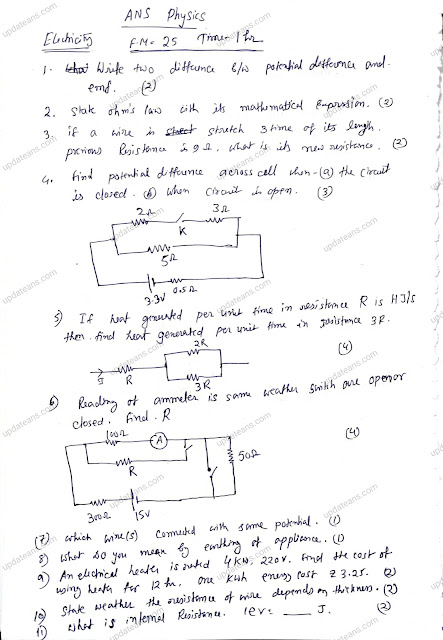 ANS Physics
Electricity F.M= 25 Time- 1 hr
1. Write two difference b/w potential difference and
emf. (2)
2. State ohm's law with its mathematical Expression. (2)
3. if a wire is stretch 3 time of its length.
previous Resistance is 9 Ω. What is its new resistance. (2)
4. find potential difference across cell when - (a) the circuit
is closed. (b) when circuit is open. (3)
2Ω 3Ω
K
5Ω
3.3V 0.5Ω
5) If heat generated per unit time in resistance R is H J/s
then find heat generated per unit time in resistance 3R.
(4)
2R
I R
3R
6) Reading of ammeter is same weather switch are open or
closed. find R
(4)
100Ω A
R 50Ω
300Ω 15V
(7) which wire(s) connected with same potential. (1)
8) What Do you mean by earthing of appliance. (1)
9) An electrical heater is rated 4KW, 220V. find the cost of
using heater for 12 hr. one KWh energy cost ₹ 3.25. (2)
10) State weather the resistance of wire depends on thickness. (2)
(11) What is internal Resistance. 1ev = ___ J. (2)
updateans.com